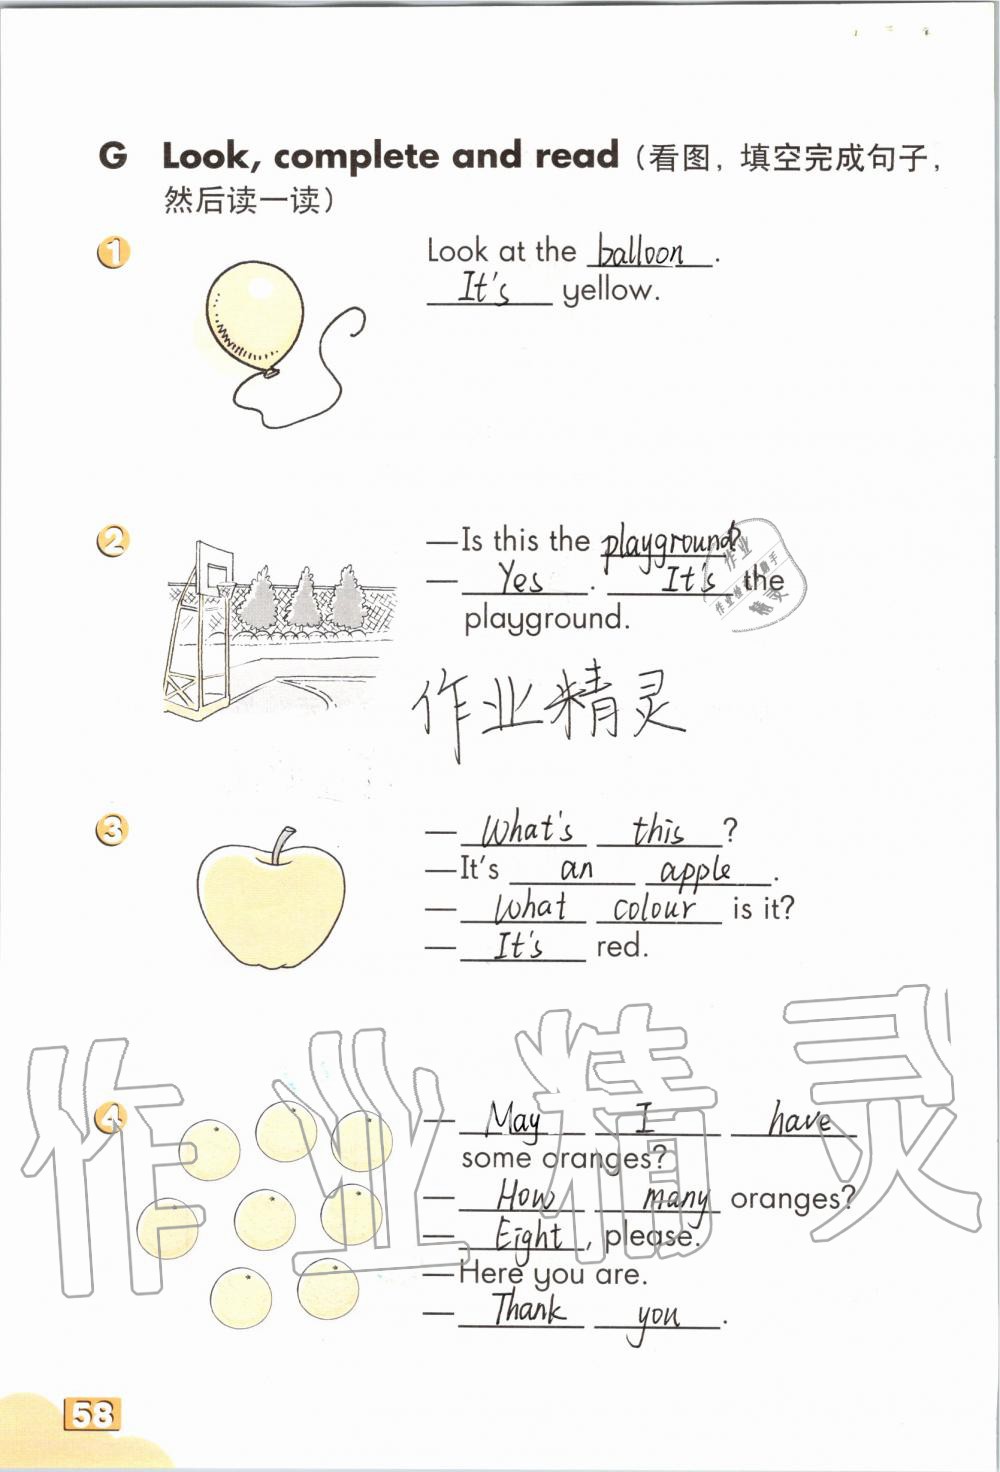 G Look, complete and read（看图，填空完成句子，
然后读一读）
1 Look at the balloon.
It's yellow.
2 —Is this the playground?
— Yes. It's the
playground.
作业精灵
3 — What's this?
—It's an apple.
— What colour is it?
— It's red.
4 — May I have
some oranges?
— How many oranges?
— Eight, please.
—Here you are.
— Thank you.
作业精灵
58